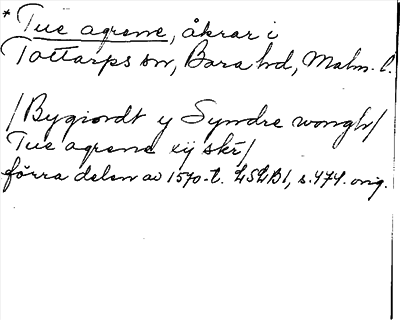 * Tue agrene, åkrar i
Tottarps sn, Bara hd, Malm. l.
/Bygiordt y Syndre wongh/
Tue agrene xij skr/
förra delen av 1570-t. LSLB1, s.474. orig.